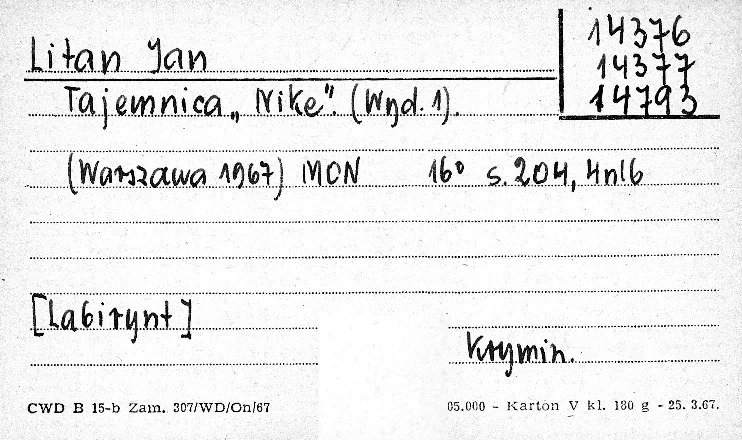 Litan Jan
14376
14377
14793
Tajemnica „Nike". (Wyd. 1).
(Warszawa 1967) MON 16° s. 204, 4nlb
[Labirynt]
Krymin.
CWD B 15-b Zam. 307/WD/On/67
05.000 - Karton V kl. 180 g - 25. 3.67.